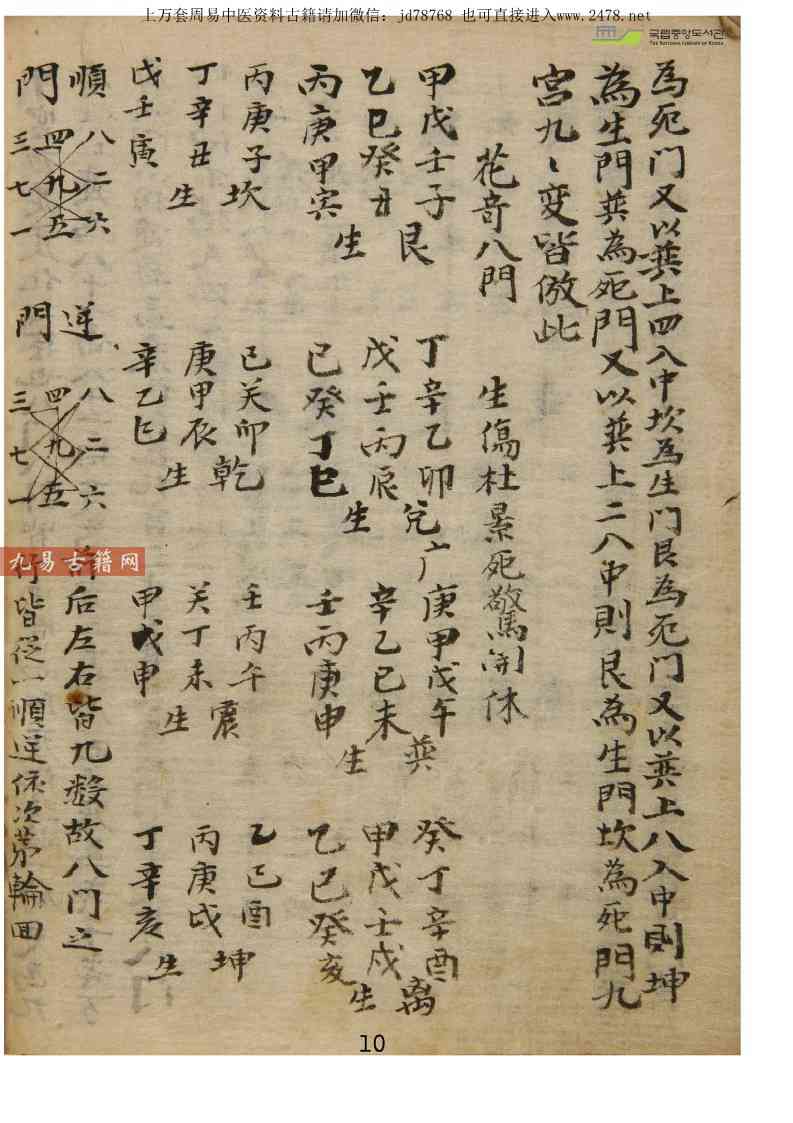 上万套周易中医资料古籍请加微信：jd78768 也可直接进入www.2478.net
국립중앙도서관
THE NATIONAL LIBRARY OF KOREA
為死门又以巽上四入中坎為生门艮為死门又以巽上八入中則坤
為生門巽為死門又以巽上二入中則艮為生門坎為死門九
宮九〻変皆倣此
花奇八門 生傷杜景死驚開休
甲戊壬子 丁辛乙卯 庚甲戊午 癸丁辛酉
艮 兌 巽 离
乙巳癸丑 戊壬丙辰 辛乙巳未 甲戊壬戌
生 生 生 生
丙庚甲寅 己癸丁巳 壬丙庚申 乙巳癸亥
丙庚子 己关卯 壬丙午 乙己酉
坎 乾 震 坤
丁辛丑 庚甲辰 关丁未 丙庚戌
生 生 生 生
戊壬寅 辛乙巳 甲戊申 丁辛亥
順門
八二六
四九五
三七一
逆門
八二六
四九五
三七一
后左右皆九数故八门之
行皆從一順逆依次第輪回
九易古籍网
10